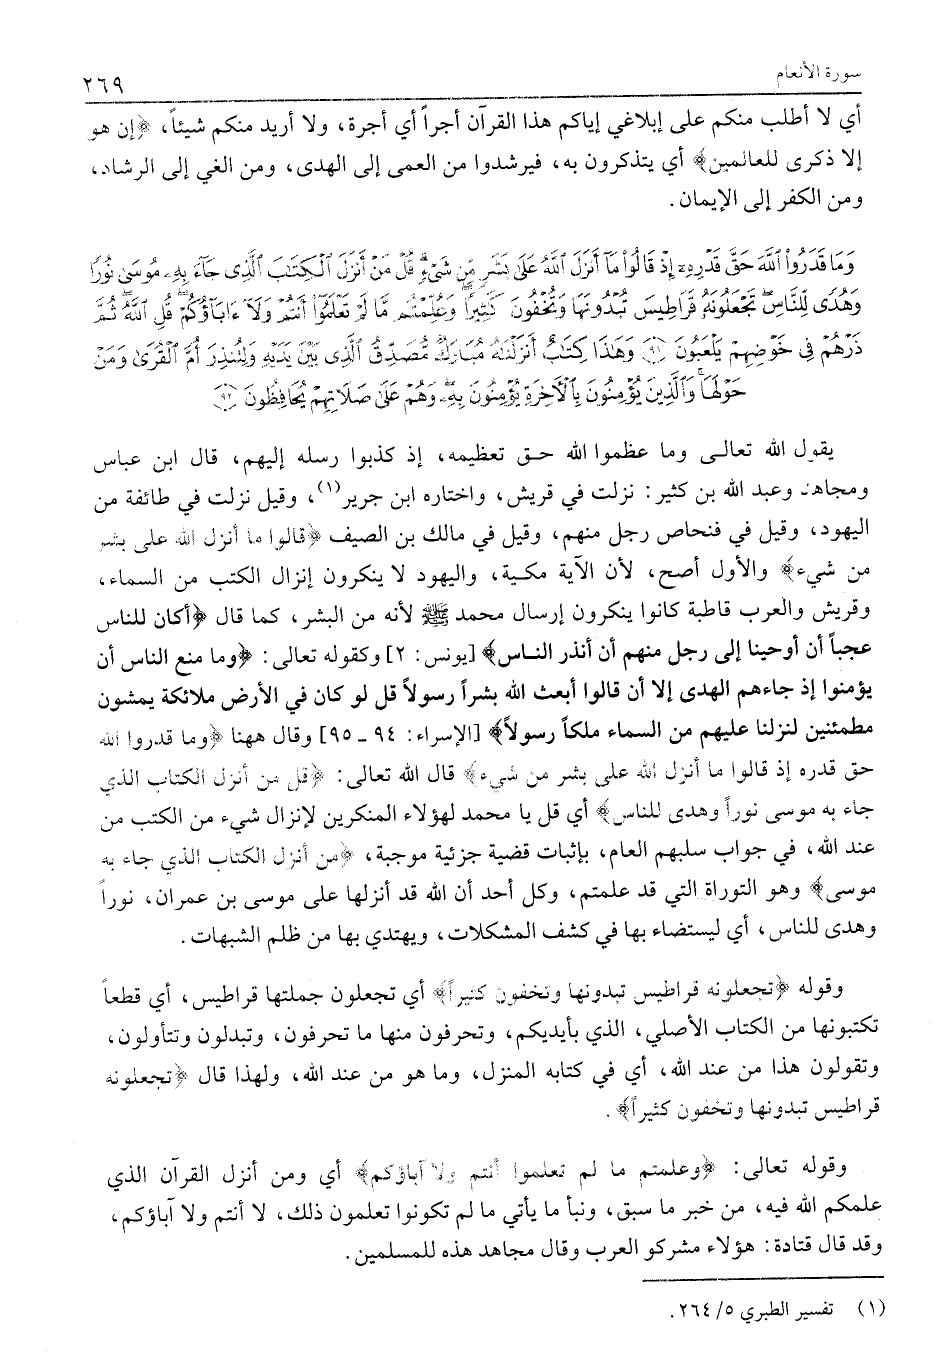 سورة الأنعام
٢٦٩
أي لا أطلب منكم على إبلاغي إياكم هذا القرآن أجراً أي أجرة، ولا أريد منكم شيئاً، ﴿إن هو
إلا ذكرى للعالمين﴾ أي يتذكرون به، فيرشدوا من العمى إلى الهدى، ومن الغي إلى الرشاد،
ومن الكفر إلى الإيمان.
وَمَا قَدَرُوا۟ ٱللَّهَ حَقَّ قَدْرِهِۦٓ إِذْ قَالُوا۟ مَآ أَنزَلَ ٱللَّهُ عَلَىٰ بَشَرٍ مِّن شَىْءٍ ۗ قُلْ مَنْ أَنزَلَ ٱلْكِتَٰبَ ٱلَّذِى جَآءَ بِهِۦ مُوسَىٰ نُورًا
وَهُدًى لِّلنَّاسِ ۖ تَجْعَلُونَهُۥ قَرَاطِيسَ تُبْدُونَهَا وَتُخْفُونَ كَثِيرًا ۖ وَعُلِّمْتُم مَّا لَمْ تَعْلَمُوٓا۟ أَنتُمْ وَلَآ ءَابَآؤُكُمْ ۖ قُلِ ٱللَّهُ ۖ ثُمَّ
ذَرْهُمْ فِى خَوْضِهِمْ يَلْعَبُونَ ﴿٩١﴾ وَهَٰذَا كِتَٰبٌ أَنزَلْنَٰهُ مُبَارَكٌ مُّصَدِّقُ ٱلَّذِى بَيْنَ يَدَيْهِ وَلِتُنذِرَ أُمَّ ٱلْقُرَىٰ وَمَنْ
حَوْلَهَا ۚ وَٱلَّذِينَ يُؤْمِنُونَ بِٱلْءَاخِرَةِ يُؤْمِنُونَ بِهِۦ ۖ وَهُمْ عَلَىٰ صَلَاتِهِمْ يُحَافِظُونَ ﴿٩٢﴾
يقول الله تعالى وما عظموا الله حق تعظيمه، إذ كذبوا رسله إليهم، قال ابن عباس
ومجاهد وعبد الله بن كثير: نزلت في قريش، واختاره ابن جرير(١)، وقيل نزلت في طائفة من
اليهود، وقيل في فنحاص رجل منهم، وقيل في مالك بن الصيف ﴿قالوا ما أنزل الله على بشر
من شيء﴾ والأول أصح، لأن الآية مكية، واليهود لا ينكرون إنزال الكتب من السماء،
وقريش والعرب قاطبة كانوا ينكرون إرسال محمد ﷺ لأنه من البشر، كما قال ﴿أكان للناس
عجباً أن أوحينا إلى رجل منهم أن أنذر الناس﴾ [يونس: ٢] وكقوله تعالى: ﴿وما منع الناس أن
يؤمنوا إذ جاءهم الهدى إلا أن قالوا أبعث الله بشراً رسولاً قل لو كان في الأرض ملائكة يمشون
مطمئنين لنزلنا عليهم من السماء ملكاً رسولاً﴾ [الإسراء: ٩٤ ـ ٩٥] وقال ههنا ﴿وما قدروا الله
حق قدره إذ قالوا ما أنزل الله على بشر من شيء﴾ قال الله تعالى: ﴿قل من أنزل الكتاب الذي
جاء به موسى نوراً وهدى للناس﴾ أي قل يا محمد لهؤلاء المنكرين لإنزال شيء من الكتب من
عند الله، في جواب سلبهم العام، بإثبات قضية جزئية موجبة، ﴿من أنزل الكتاب الذي جاء به
موسى﴾ وهو التوراة التي قد علمتم، وكل أحد أن الله قد أنزلها على موسى بن عمران، نوراً
وهدى للناس، أي ليستضاء بها في كشف المشكلات، ويهتدي بها من ظلم الشبهات.
وقوله ﴿تجعلونه قراطيس تبدونها وتخفون كثيراً﴾ أي تجعلون جملتها قراطيس، أي قطعاً
تكتبونها من الكتاب الأصلي، الذي بأيديكم، وتحرفون منها ما تحرفون، وتبدلون وتتأولون،
وتقولون هذا من عند الله، أي في كتابه المنزل، وما هو من عند الله، ولهذا قال ﴿تجعلونه
قراطيس تبدونها وتخفون كثيراً﴾.
وقوله تعالى: ﴿وعلمتم ما لم تعلموا أنتم ولا آباؤكم﴾ أي ومن أنزل القرآن الذي
علمكم الله فيه، من خبر ما سبق، ونبأ ما يأتي ما لم تكونوا تعلمون ذلك، لا أنتم ولا آباؤكم،
وقد قال قتادة: هؤلاء مشركو العرب وقال مجاهد هذه للمسلمين.
(١) تفسير الطبري ٥/ ٢٦٤.